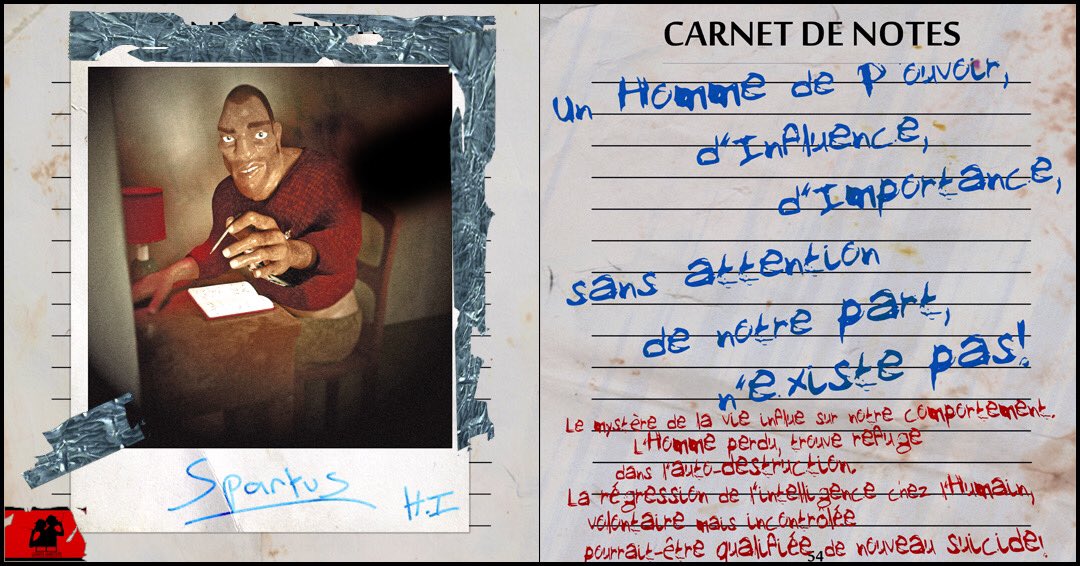 Spartus
H.I
CARNET DE NOTES
un Homme de Pouvoir,
d'Influence,
d'Importance,
sans attention
de notre part,
n'existe pas!
Le mystère de la vie influe sur notre comportement.
L'Homme perdu, trouve refuge
dans l'auto-destruction.
La régression de l'intelligence chez l'Humain,
volontaire mais incontrôlée
pourrait-être qualifiée de nouveau suicide!
54